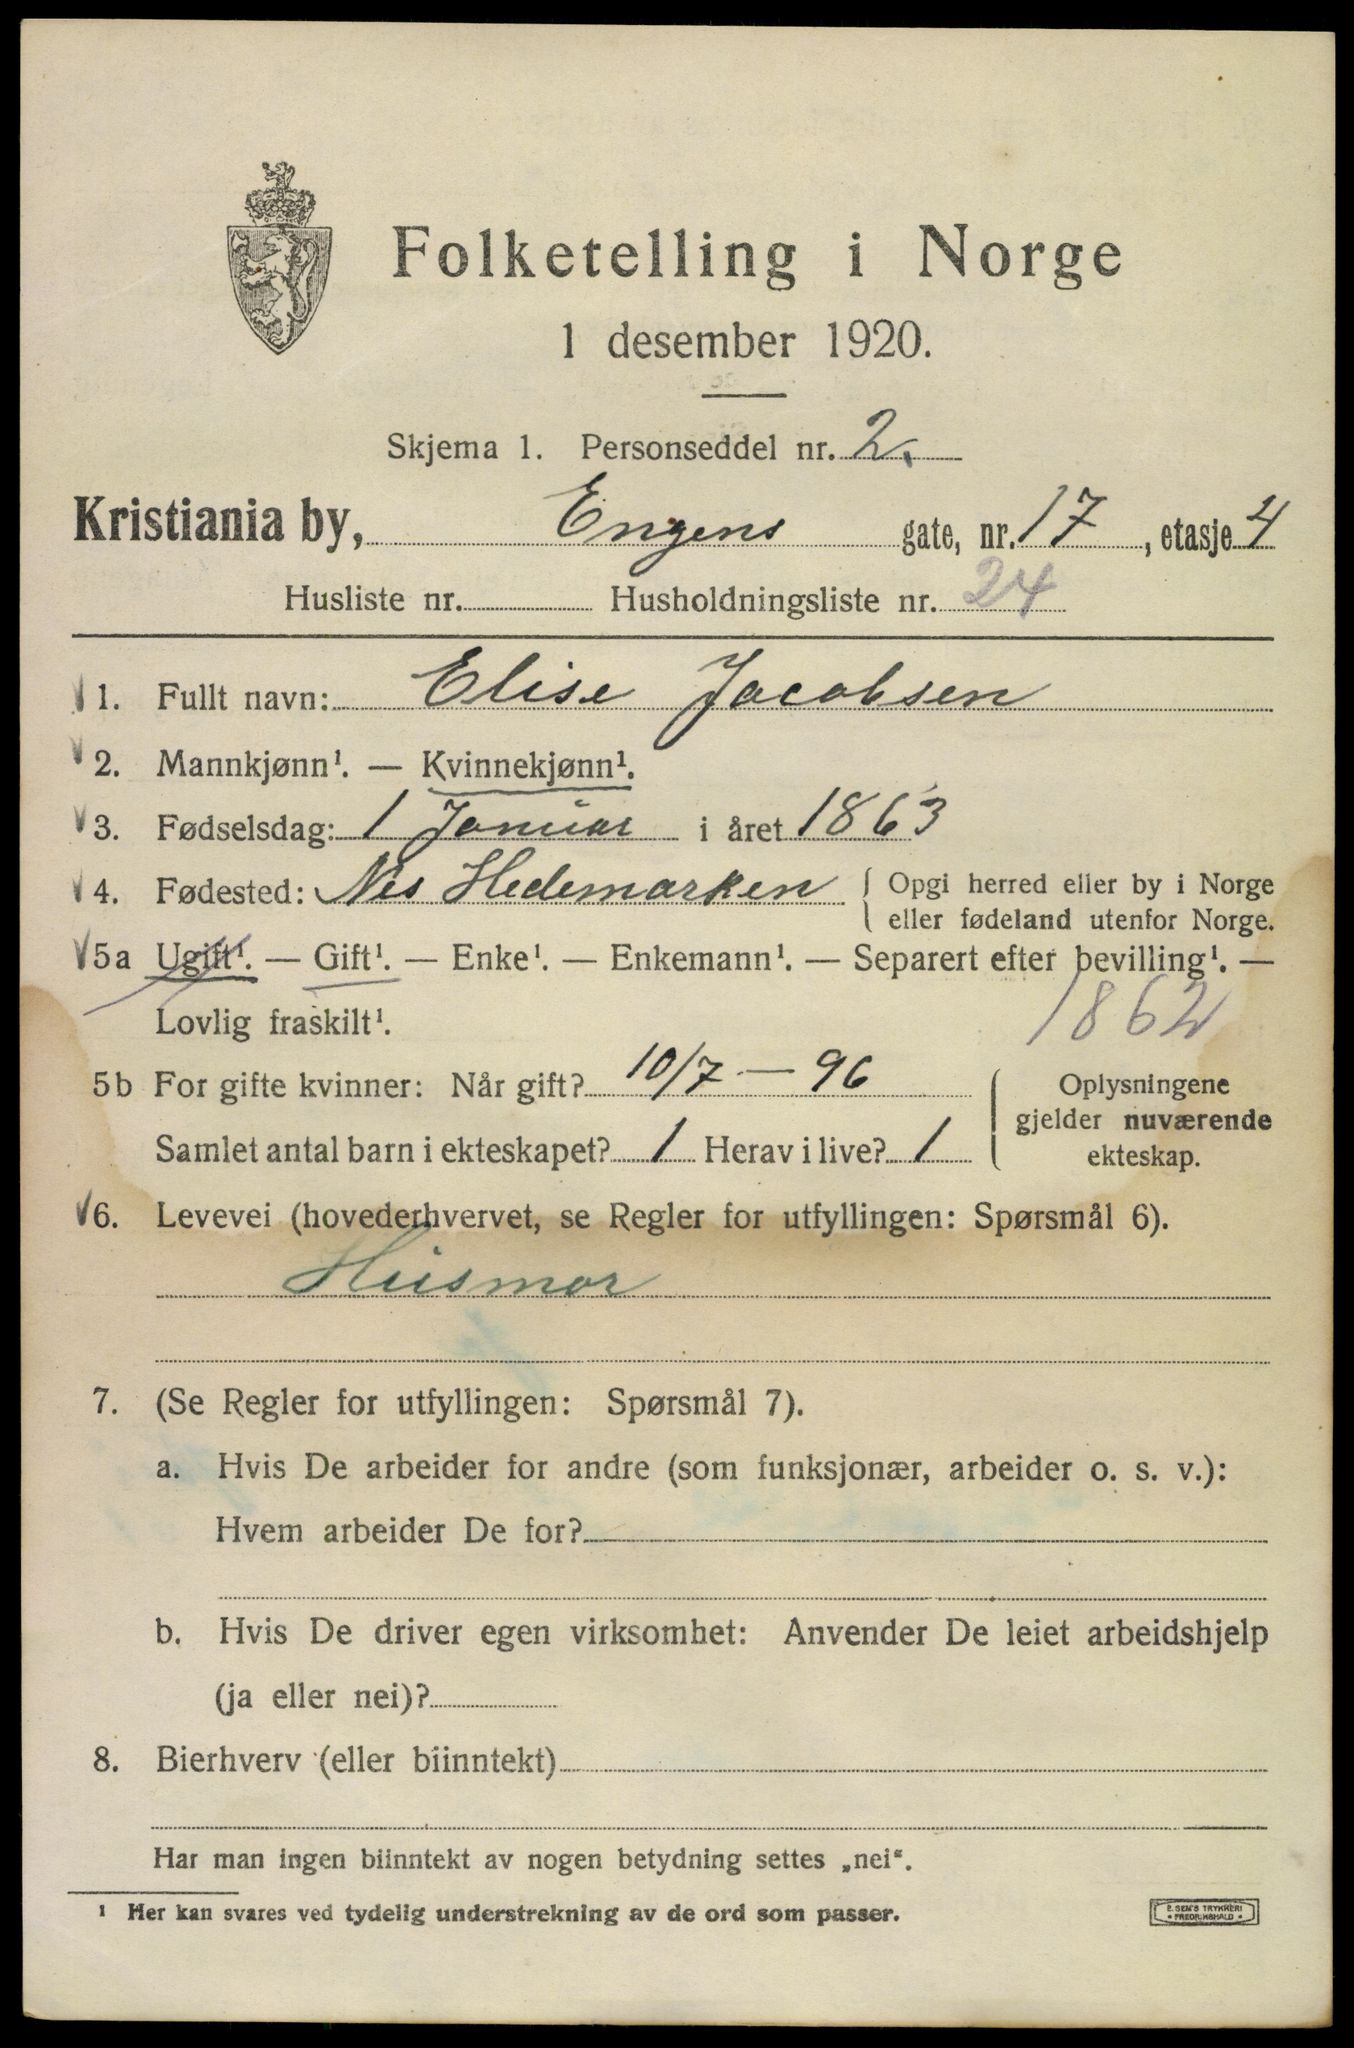 Folketelling i Norge
1 desember 1920.
Skjema 1. Personseddel nr. 2.
Kristiania by, Engens gate, nr. 17, etasje 4
Husliste nr. Husholdningsliste nr. 24
1. Fullt navn: Elise Jacobsen
2. Mannkjønn¹. — Kvinnekjønn¹.
3. Fødselsdag: 1 Januar i året 1863
4. Fødested: Nes Hedemarken { Opgi herred eller by i Norge
eller fødeland utenfor Norge.
5a Ugift¹. — Gift¹. — Enke¹. — Enkemann¹. — Separert efter bevilling¹. —
Lovlig fraskilt¹. 1862
5b For gifte kvinner: Når gift? 10/7 — 96 Oplysningene
gjelder nuværende
Samlet antal barn i ekteskapet? 1 Herav i live? 1 ekteskap.
6. Levevei (hovederhvervet, se Regler for utfyllingen: Spørsmål 6).
Husmor
7. (Se Regler for utfyllingen: Spørsmål 7).
a. Hvis De arbeider for andre (som funksjonær, arbeider o. s. v.):
Hvem arbeider De for?
b. Hvis De driver egen virksomhet: Anvender De leiet arbeidshjelp
(ja eller nei)?
8. Bierhverv (eller biinntekt)
Har man ingen biinntekt av nogen betydning settes „nei“.
¹ Her kan svares ved tydelig understrekning av de ord som passer.
E. SEM'S TRYKKERI
• FREDRIKSHALD •